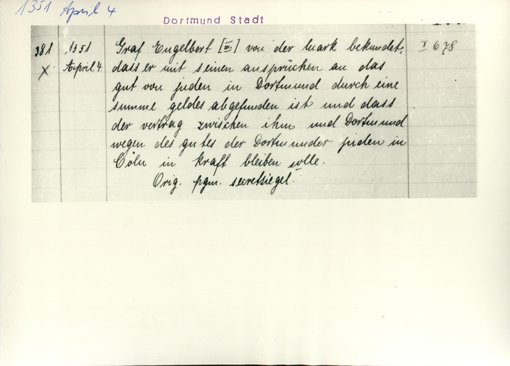 1351 April 4
Dortmund Stadt
381 1351 Graf Engelbert [III] von der Mark bekundet, I 678
X April 4. dass er mit seinen ansprüchen an das
gut von juden in Dortmund durch eine
summe geldes abgefunden ist und dass
der vertrag zwischen ihm und Dortmund
wegen des gutes der Dortmunder juden in
Cöln in kraft bleiben solle.
Orig. pgm. secretsiegel.